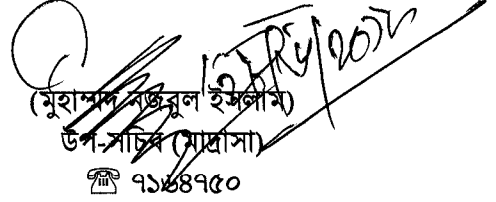 (মুহাম্মদ নজরুল ইসলাম)
উপ-সচিব (মাদ্রাসা)
☎ ৭১৬৪৭৫০